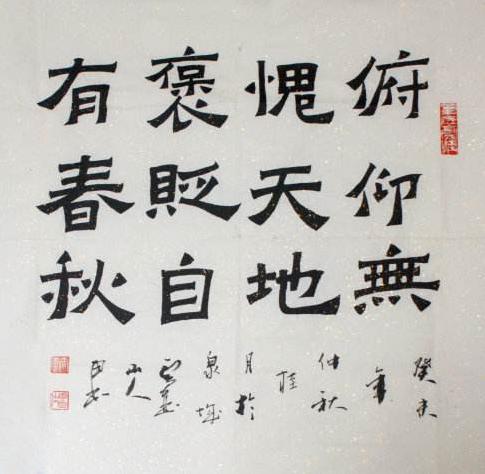 俯仰無
愧天地
褒貶自
有春秋
癸未
年
仲秋
桂
月於
泉城
山人